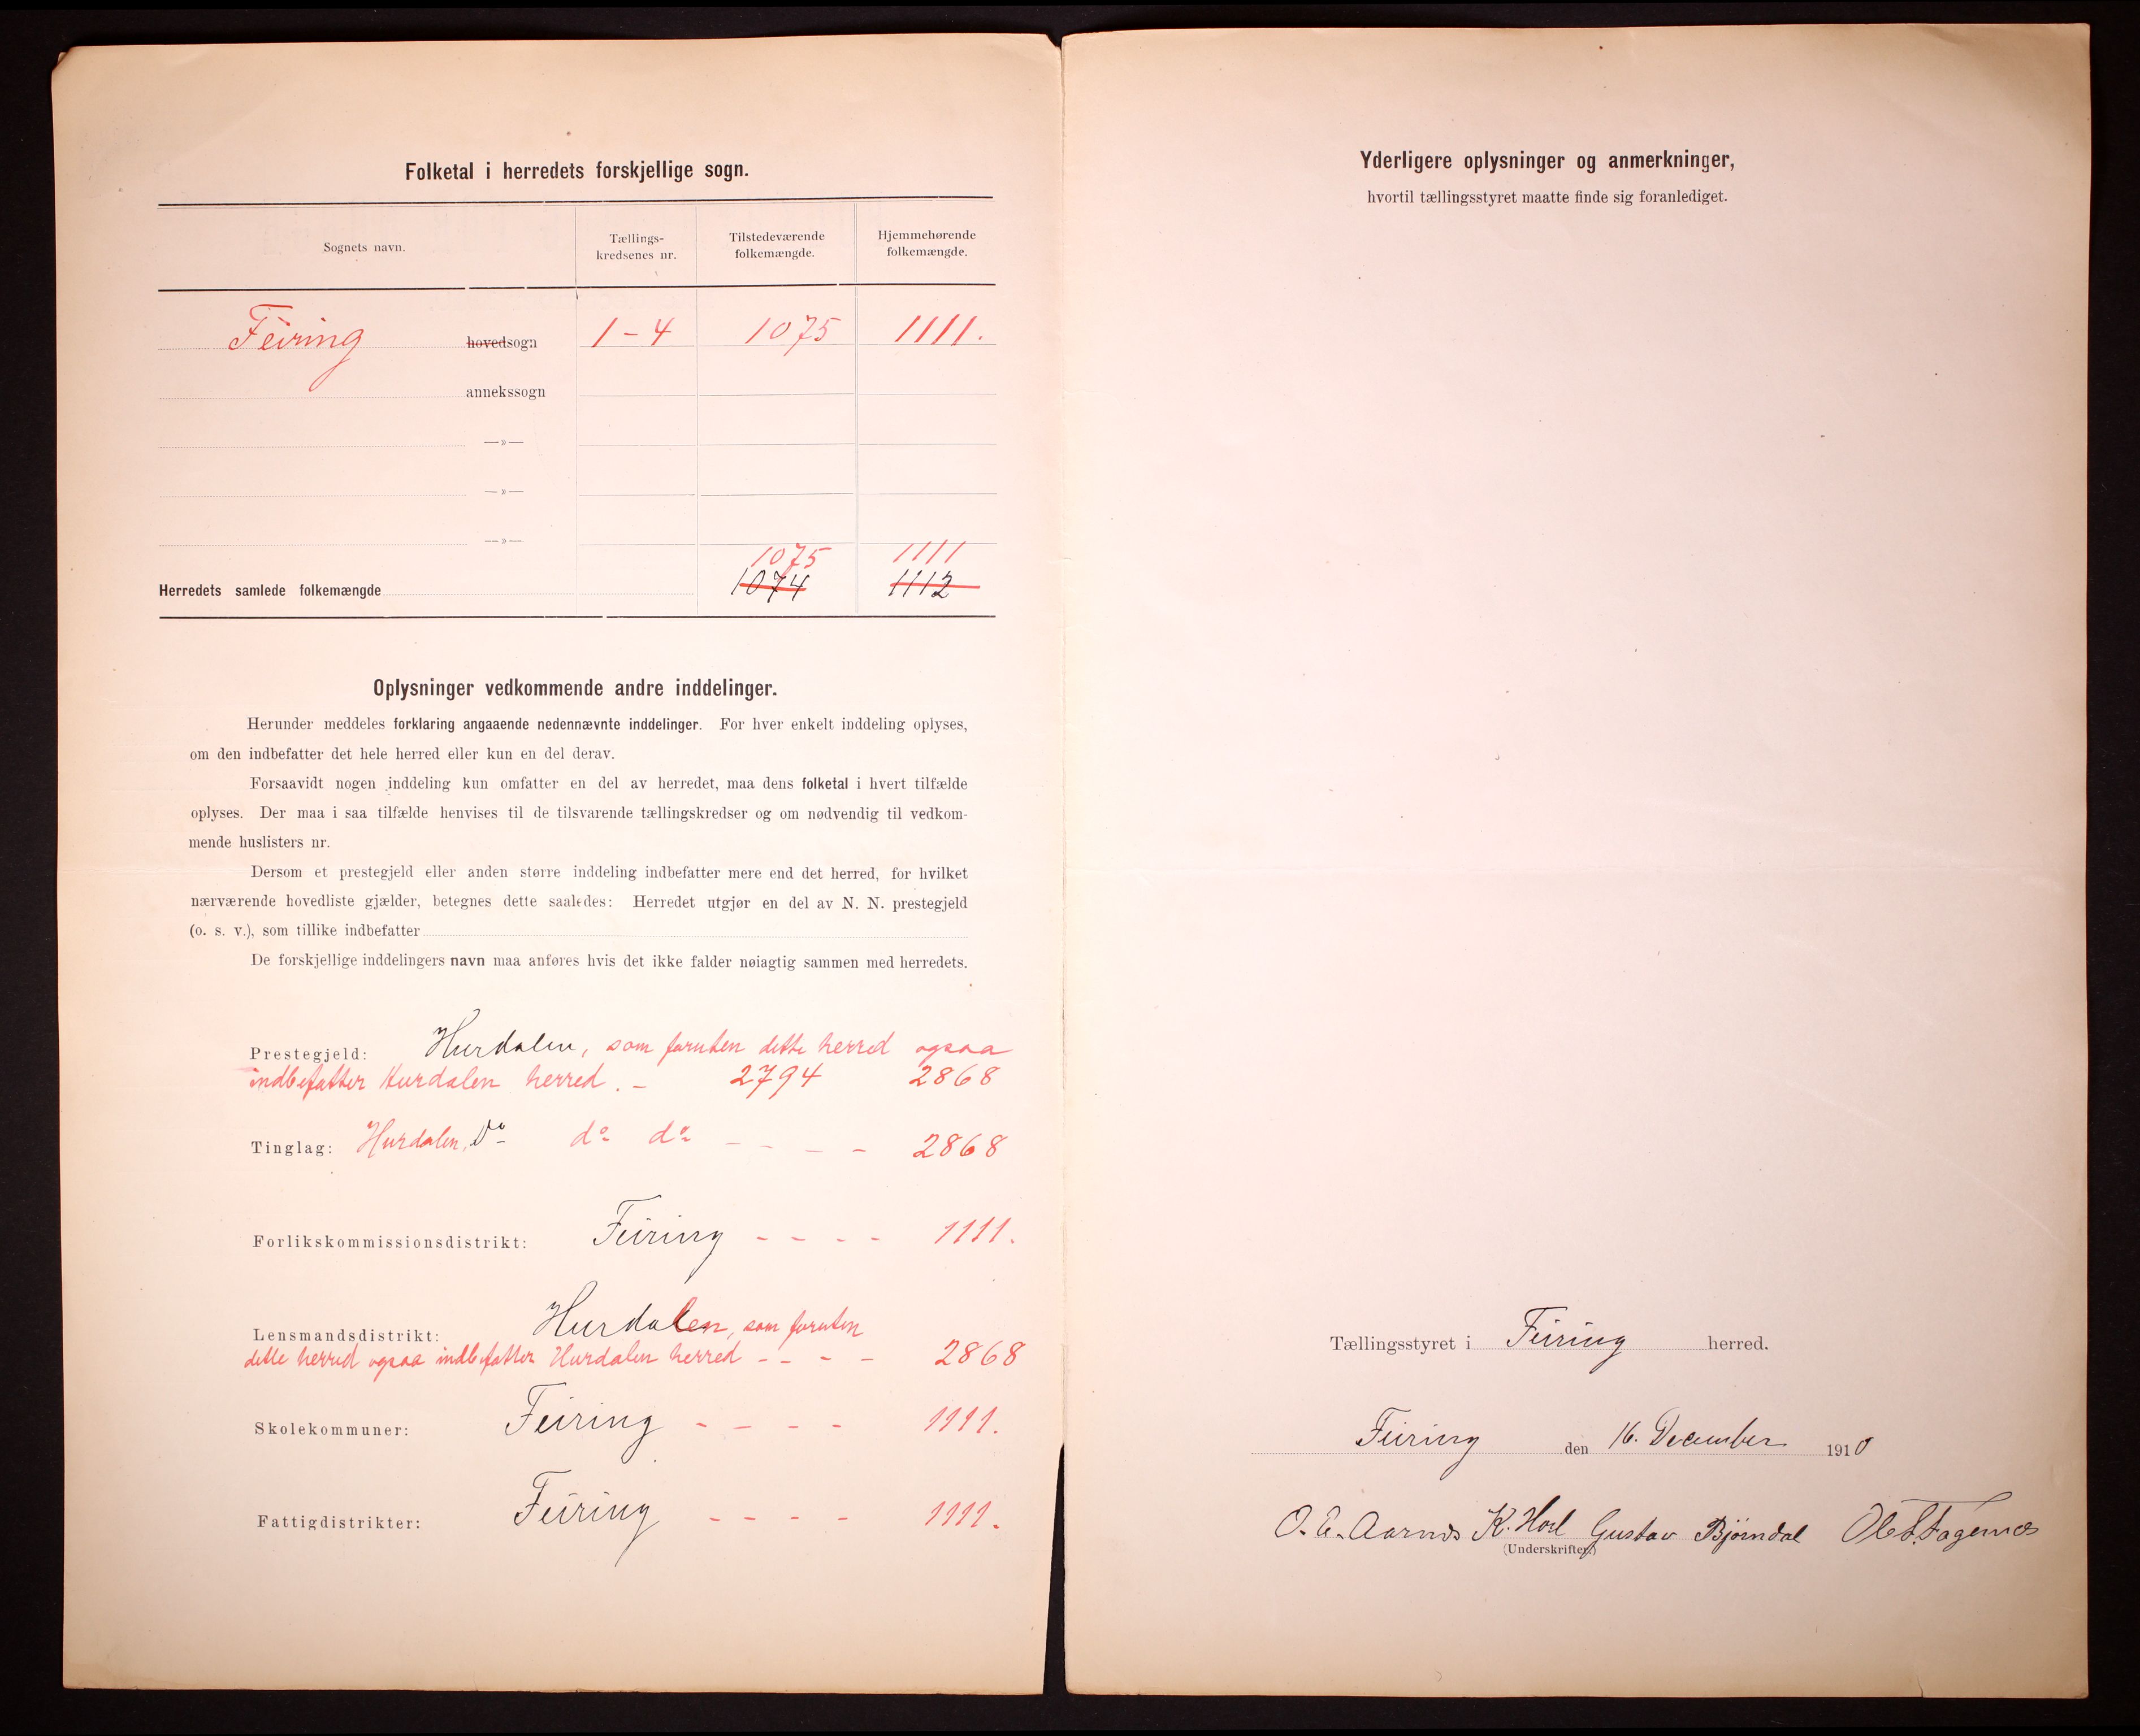 Folketal i herredets forskjellige sogn.
Sognets navn.
Tællings-
kredsenes nr.
Tilstedeværende
folkemængde.
Hjemmehørende
folkemængde.
Feiring hovedsogn 1-4 1075 1111.
annekssogn
—»—
—»—
—»—
1075 1111
Herredets samlede folkemængde 1074 1112
Oplysninger vedkommende andre inddelinger.
Herunder meddeles forklaring angaaende nedennævnte inddelinger. For hver enkelt inddeling oplyses,
om den indbefatter det hele herred eller kun en del derav.
Forsaavidt nogen inddeling kun omfatter en del av herredet, maa dens folketal i hvert tilfælde
oplyses. Der maa i saa tilfælde henvises til de tilsvarende tællingskredser og om nødvendig til vedkom-
mende huslisters nr.
Dersom et prestegjeld eller anden større inddeling indbefatter mere end det herred, for hvilket
nærværende hovedliste gjælder, betegnes dette saaledes: Herredet utgjør en del av N. N. prestegjeld
(o. s. v.), som tillike indbefatter
De forskjellige inddelingers navn maa anføres hvis det ikke falder nøiagtig sammen med herredets.
Prestegjeld: Hurdalen, som foruten dette herred ogsaa
indbefatter Hurdalen herred. – 2794 2868
Tinglag: Hurdalen, Do do do – – – – 2868
Forlikskommissionsdistrikt: Feiring – – – – 1111.
Lensmandsdistrikt: Hurdalen, som foruten
dette herred ogsaa indbefatter Hurdalen herred – – – – 2868
Skolekommuner: Feiring – – – – 1111.
Fattigdistrikter: Feiring – – – – 1111.
Yderligere oplysninger og anmerkninger,
hvortil tællingsstyret maatte finde sig foranlediget.
Tællingsstyret i Feiring herred.
Feiring den 16. December 1910
O. E. Aarnes K. Hol Gustav Bjørndal Ole T. Fagernes
(Underskrifter.)